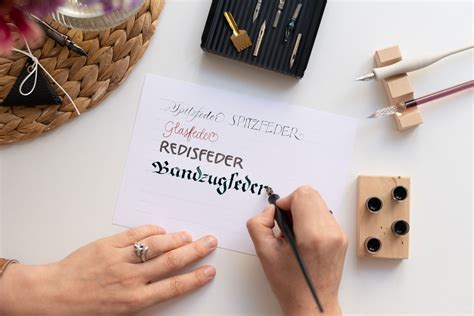 Spitzfeder SPITZFEDER
Glasfeder
REDISFEDER
Bandzugfeder